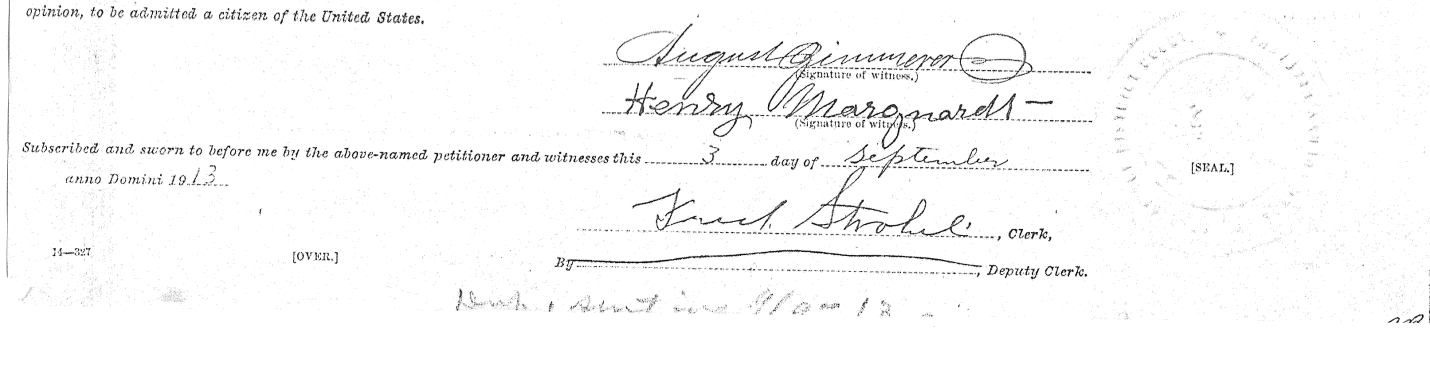 opinion, to be admitted a citizen of the United States.
August Zimmerer
(Signature of witness.)
Henry Marquardt
(Signature of witness.)
Subscribed and sworn to before me by the above-named petitioner and witnesses this 3 day of September
[SEAL.]
anno Domini 1913
Fred. Strobel, Clerk,
14—327 [OVER.] By , Deputy Clerk.
sent in